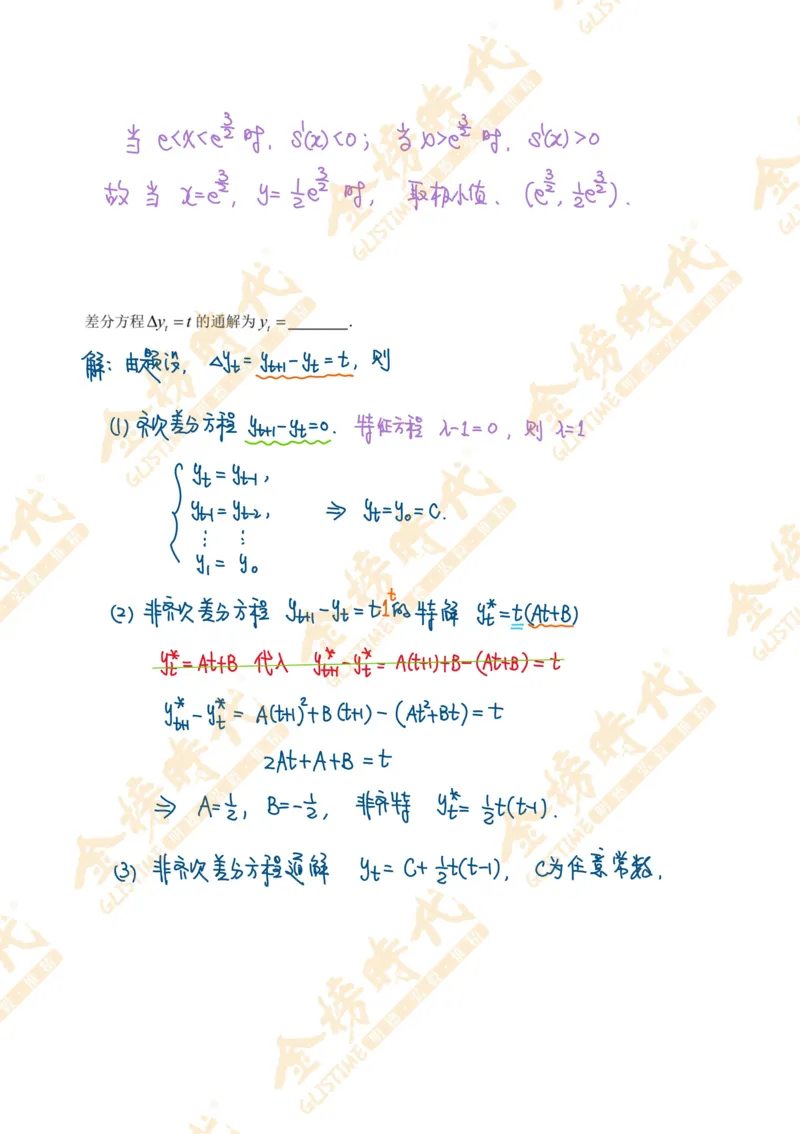 当 e<x<e^{3/2} 时, S'(x)<0; 当 x>e^{3/2} 时, S'(x)>0
故当 x=e^{3/2}, y=\frac{1}{2}e^{3/2} 时, 取极小值. (e^{3/2}, \frac{1}{2}e^{3/2}).
差分方程Δy_t = t 的通解为 y_t = ________.
解: 由题设, Δy_t = y_{t+1} - y_t = t, 则
(1) 齐次差分方程 y_{t+1} - y_t = 0. 特征方程 λ-1=0, 则 λ=1
y_t = y_{t-1},
y_{t-1} = y_{t-2}, ⇒ y_t = y_0 = C.
⋮ ⋮
y_1 = y_0
(2) 非齐次差分方程 y_{t+1} - y_t = t1^t 的特解 y_t^* = t(At+B)
y_t^* = At+B 代入 y_{t+1}^* - y_t^* = A(t+1)+B-(At+B) = t
y_{t+1}^* - y_t^* = A(t+1)^2+B(t+1)-(At^2+Bt) = t
2At+A+B = t
⇒ A=\frac{1}{2}, B=-\frac{1}{2}, 非齐特 y_t^* = \frac{1}{2}t(t-1).
(3) 非齐次差分方程通解 y_t = C+\frac{1}{2}t(t-1), C为任意常数.
金榜時代
GLISTIME